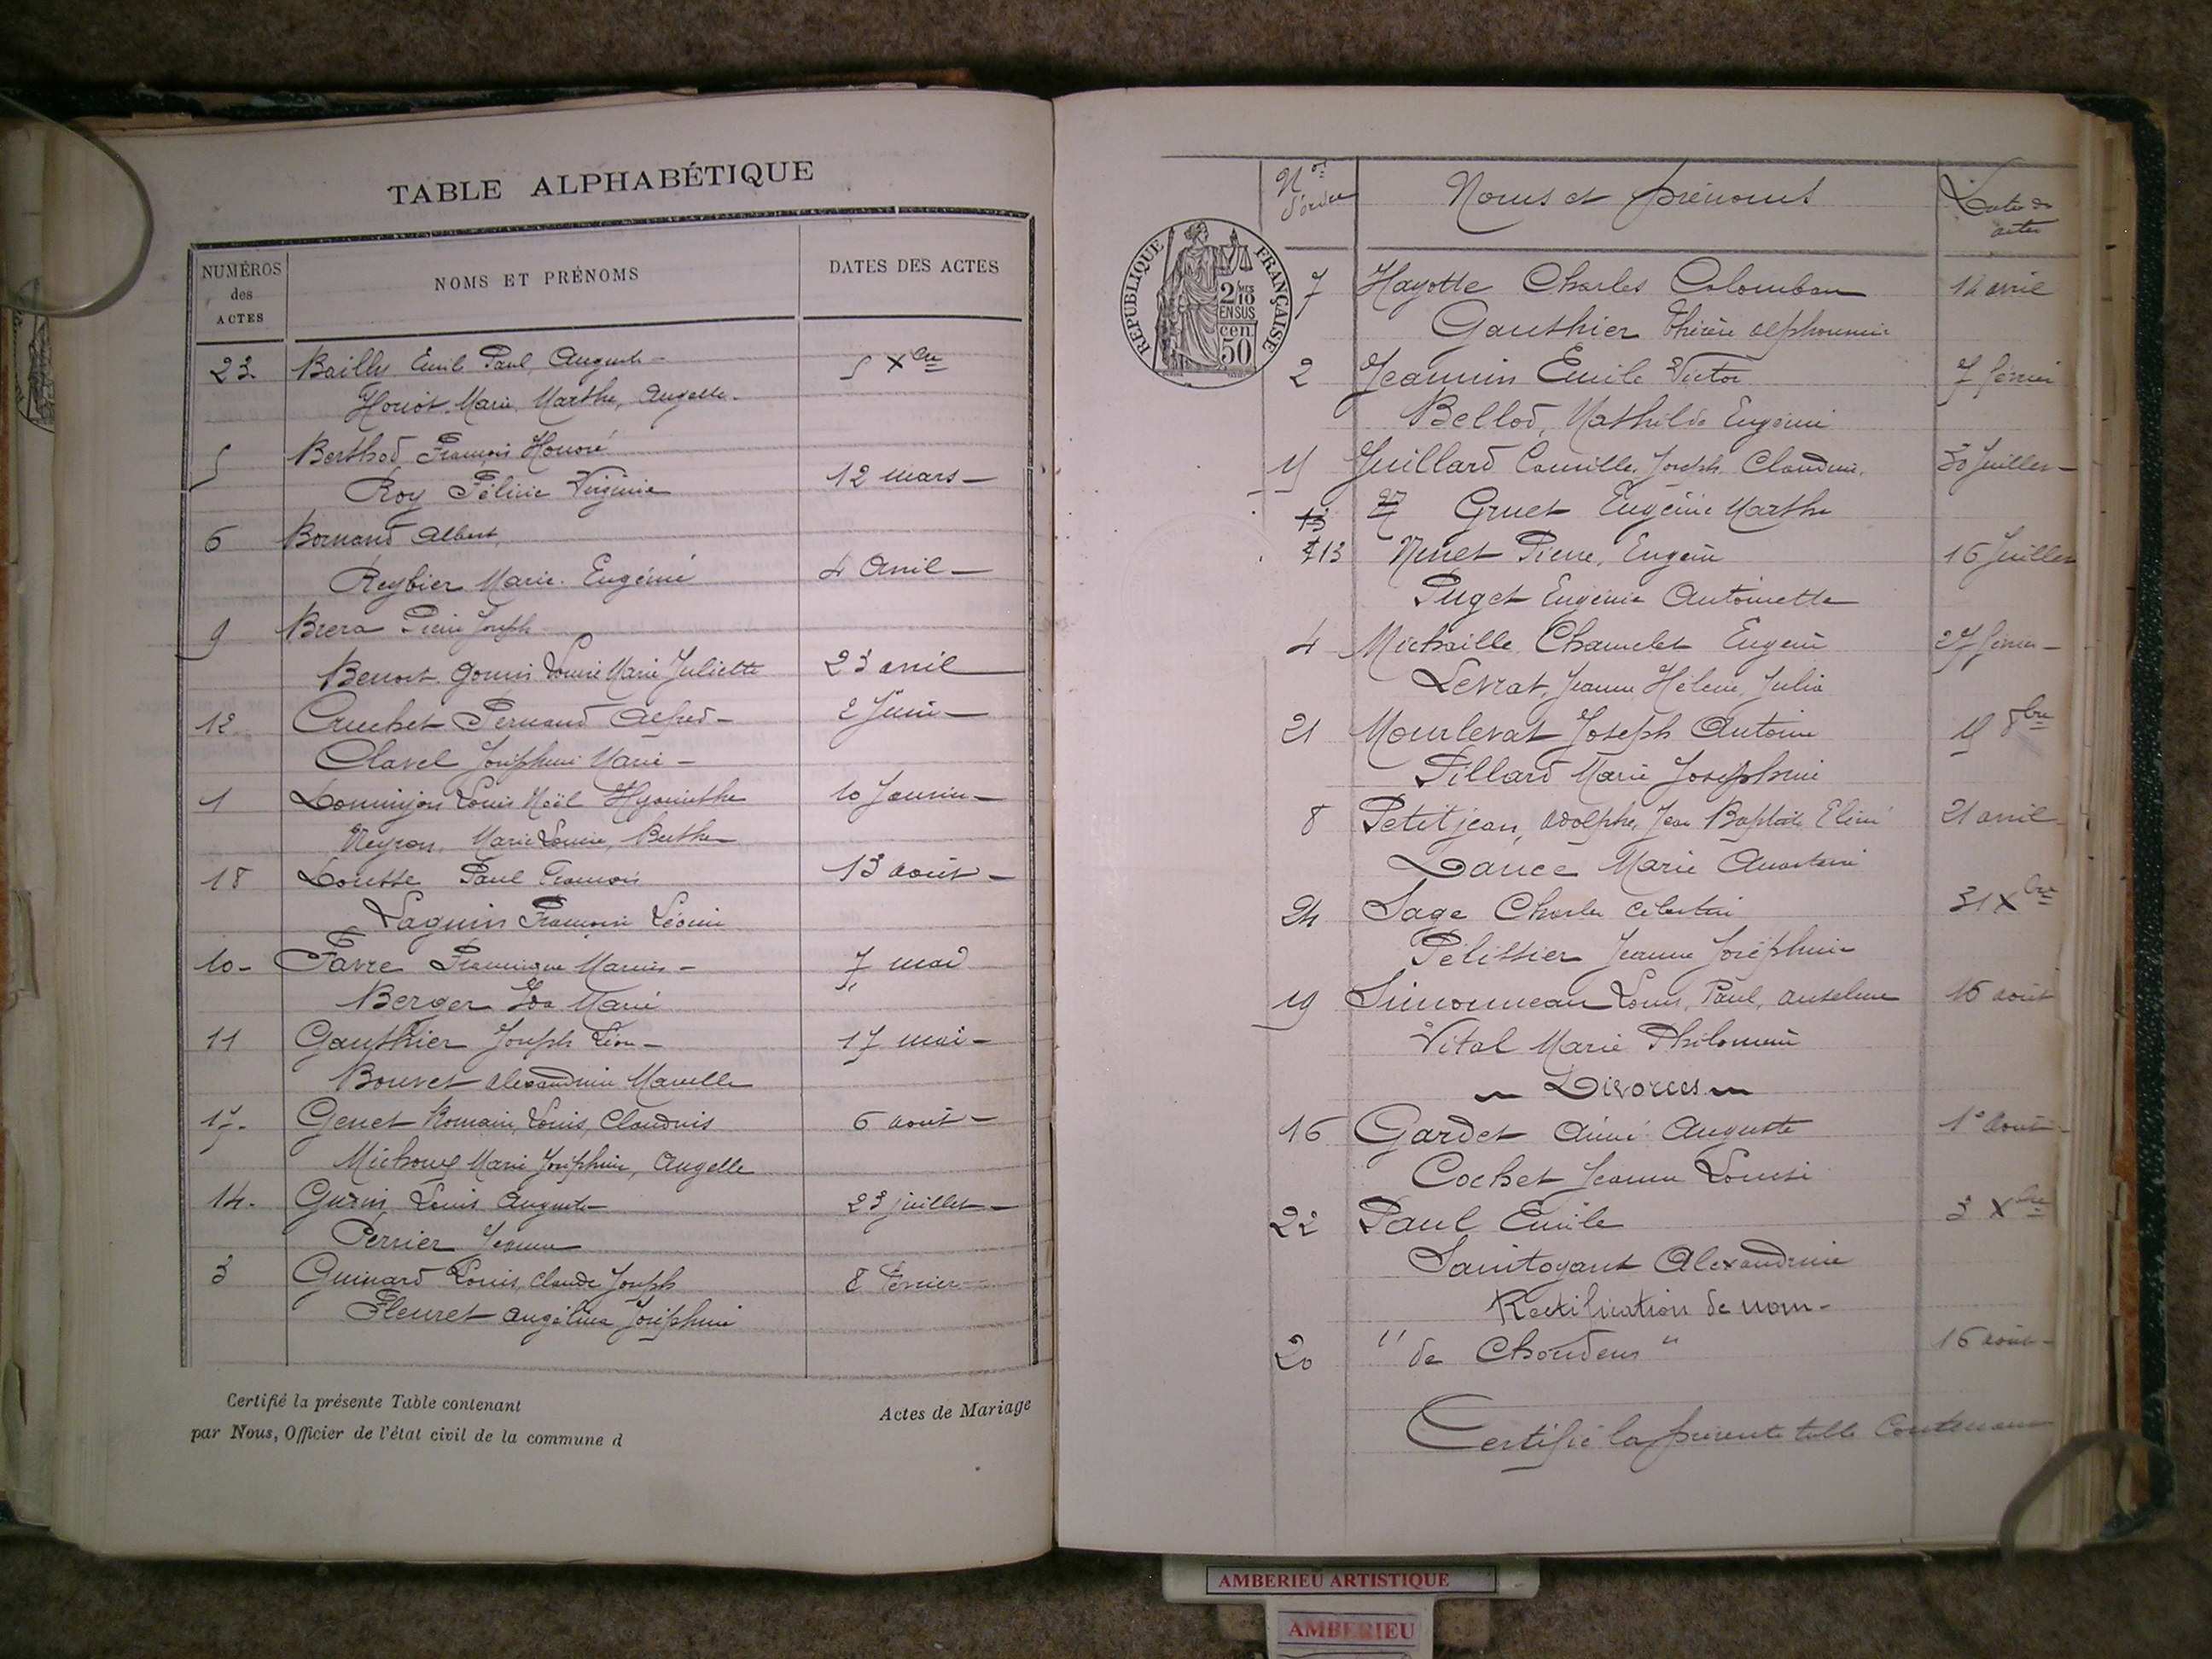 TABLE ALPHABÉTIQUE
NUMÉROS des ACTES
NOMS ET PRÉNOMS
DATES DES ACTES
23 Bailly Emile Paul Auguste - 5 Xbre
Horiot Marie, Marthe, Angelle.
5 Berthod François Honoré
Roy Félicie Virginie 12 mars -
6 Bornand Albert,
Reybier Marie. Eugénie 4 Avril -
9 Brera Pierre Joseph
Benoit Gonin Louise Marie Juliette 23 avril
12. Cruchet Fernand Alfred - 2 Juin -
Clavel Joséphine Marie -
1 Dominjon Louis Noël Hyacinthe 10 Janvier -
Neyron, Marie Louise, Berthe
18 Doutte Paul François 13 août -
Laguin Françoise Léonie
10 - Favre Marius - 7 mai
Berger Ida Marie
11 Gauthier Joseph Léon - 17 mai -
Bouvet Alexandrine Marcelle
17. Genet Romain, Louis, Claudius 6 août -
Michoux Marie Joséphine, Angelle
14. Guérin Louis Auguste 23 juillet -
Perrier Jeanne
3 Guinard Louis, Claude Joseph 8 février -
Fleuret Angélina Joséphine
Certifié la présente Table contenant
Actes de Mariage
par Nous, Officier de l'état civil de la commune d
Nos d'ordre
Noms et prénoms
Dates des actes
RÉPUBLIQUE FRANÇAISE
2/10 EN SUS
cen 50
7 Hayotte Charles Colomban 14 avril
Gauthier Thérèse Alphonsine
2 Jeannin Emile Victor 7 février
Bellod, Mathilde Eugénie
15 Juillard Camille, Joseph Claudius. 30 Juillet -
13 Gruet Eugénie Marthe
13 Ninet Pierre, Eugène 16 Juillet
Puget Eugénie Antoinette
4 Michaille Chamelet Eugène 27 février -
Levrat, Jeanne Hélène, Julia
21 Mourlevat Joseph Antoine 15 8bre
Pillard Marie Joséphine
8 Petitjean, Adolphe, Jean Baptiste 21 avril -
Dance Marie
24 Sage Charles Célestin 31 Xbre
Pélissier Jeanne Joséphine
19 Simonneau Louis, Paul, Anselme 16 août
Vital Marie Philomène
~ Divorces ~
16 Gardet Aimé Auguste 1° Août -
Cochet Jeanne Louise
22 Paul Emile 3 Xbre
Sanitoyant Alexandrine
Rectification de nom -
20 " de Choudens " 16 août -
Certifié la présente table contenant
AMBERIEU ARTISTIQUE
AMBERIEU